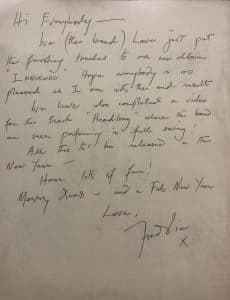 Hi Everybody —
We (the band) have just put
the finishing touches to our new album
"INNUENDO" Hope everybody is as
pleased as I am with the end result
We have also completed a video
for the track "Headlong" where the band
are seen performing in full swing!
All this to be released in the
New Year —
Have lots of fun!
Merry Xmas — and a Fab New Year
Love,
Freddie
x